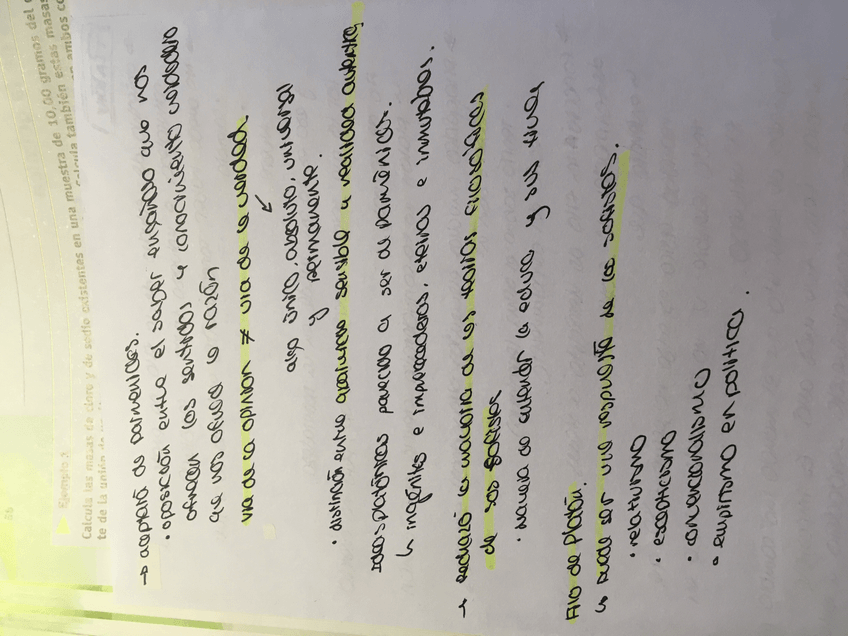 86
Ejemplo 2
Calcula las masas de cloro y de sodio existentes en una muestra de 10,00 gramos del
te de la unión de
Calcula también estas masas
ambos co
→ aceptará de parménides.
· oposición entre el saber engañoso que nos
ofrecen los sentidos y conocimiento verdadero
que nos ofrece la razón
vía de la opinión ≠ vía de la verdad.
↙
algo único, absoluto, universal
y permanente.
· distinción entre apariencia sensible y realidad auténtica,
ideas platónicas parecido al ser de parménides.
↳ ingénitas e imperecederas, eternas e inmutables.
→ rechazó la mayoría de las teorías filosóficas
de los sofistas
· manera de entender la educ y sus fines
Filo de Platón.
↳ puede ser una respuesta de los sofistas.
· relativismo
· escepticismo
· convencionalismo
· empirismo en política.